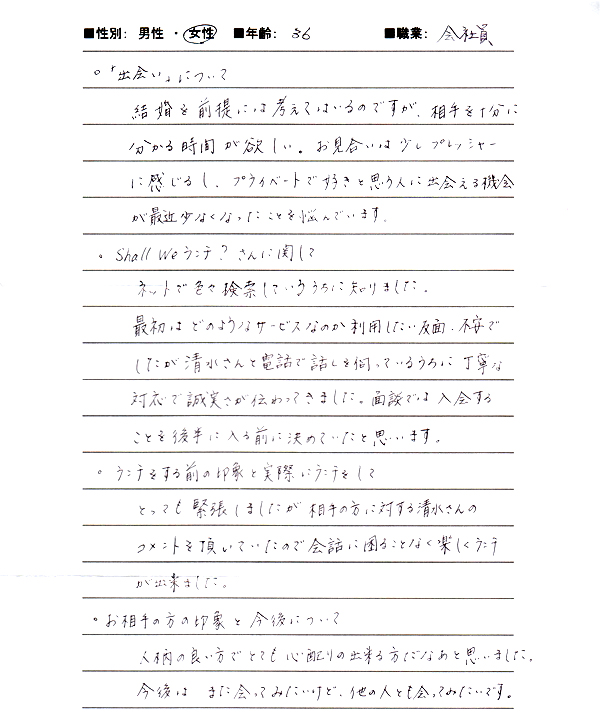 ■性別: 男性 ・ 女性 ■年齢: 36 ■職業: 会社員
。「出会い」について
結婚を前提には考えてはいるのですが、相手を十分に
分かる時間が欲しい。お見合いは少しプレッシャー
に感じるし、プライベートで好きと思う人に出会える機会
が最近少なくなったことを悩んでいます。
。Shall Weランチ？さんに関して
ネットで色々検索しているうちに知りました。
最初はどのようなサービスなのか利用したい反面、不安で
したが清水さんと電話で話しを伺っているうちに丁寧な
対応で誠実さが伝わってきました。面談では入会する
ことを後半に入る前に決めていたと思います。
。ランチをする前の印象と実際にランチをして
とっても緊張しましたが相手の方に対する清水さんの
コメントを頂いていたので会話に困ることなく楽しくランチ
が出来ました。
。お相手の方の印象と今後について
人柄の良い方でとても心配りの出来る方だなあと思いました。
今後は また会ってみたいけど、他の人とも会ってみたいです。